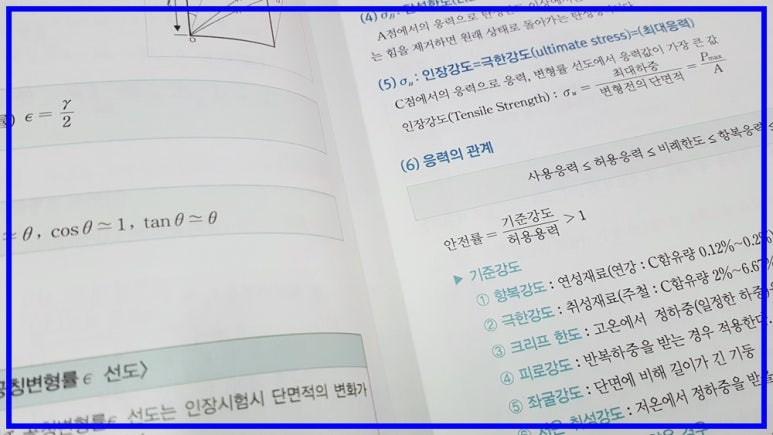 ϵ = γ/2
≃ θ, cos θ ≃ 1, tan θ ≃ θ
공칭변형률 ϵ 선도〉
공칭변형률 ϵ 선도는 인장시험시 단면적의 변화가
(4)
A점에서의 응력으로
는 힘을 제거하면 원래 상태로 돌아가는
(5) σu : 인장강도=극한강도(ultimate stress)=(최대응력)
C점에서의 응력으로 응력, 변형률 선도에서 응력값이 가장 큰 값
인장강도(Tensile Strength) : σu = 최대하중/변형전의 단면적 = Pmax/A
(6) 응력의 관계
사용응력 ≤ 허용응력 ≤ 비례한도 ≤ 항복응력 ≤
안전률 = 기준강도/허용용력 > 1
▶ 기준강도
① 항복강도 : 연성재료(연강 : C함유량 0.12%~0.2%)
② 극한강도 : 취성재료(주철 : C함유량 2%~6.67%
③ 크리프 한도 : 고온에서 정하중(일정한 하중)
④ 피로강도 : 반복하중을 받는 경우 적용한다.
⑤ 좌굴강도 : 단면에 비해 길이가 긴 기둥
⑥ 저온 취성강도 : 저온에서 정하중을 받을
경우